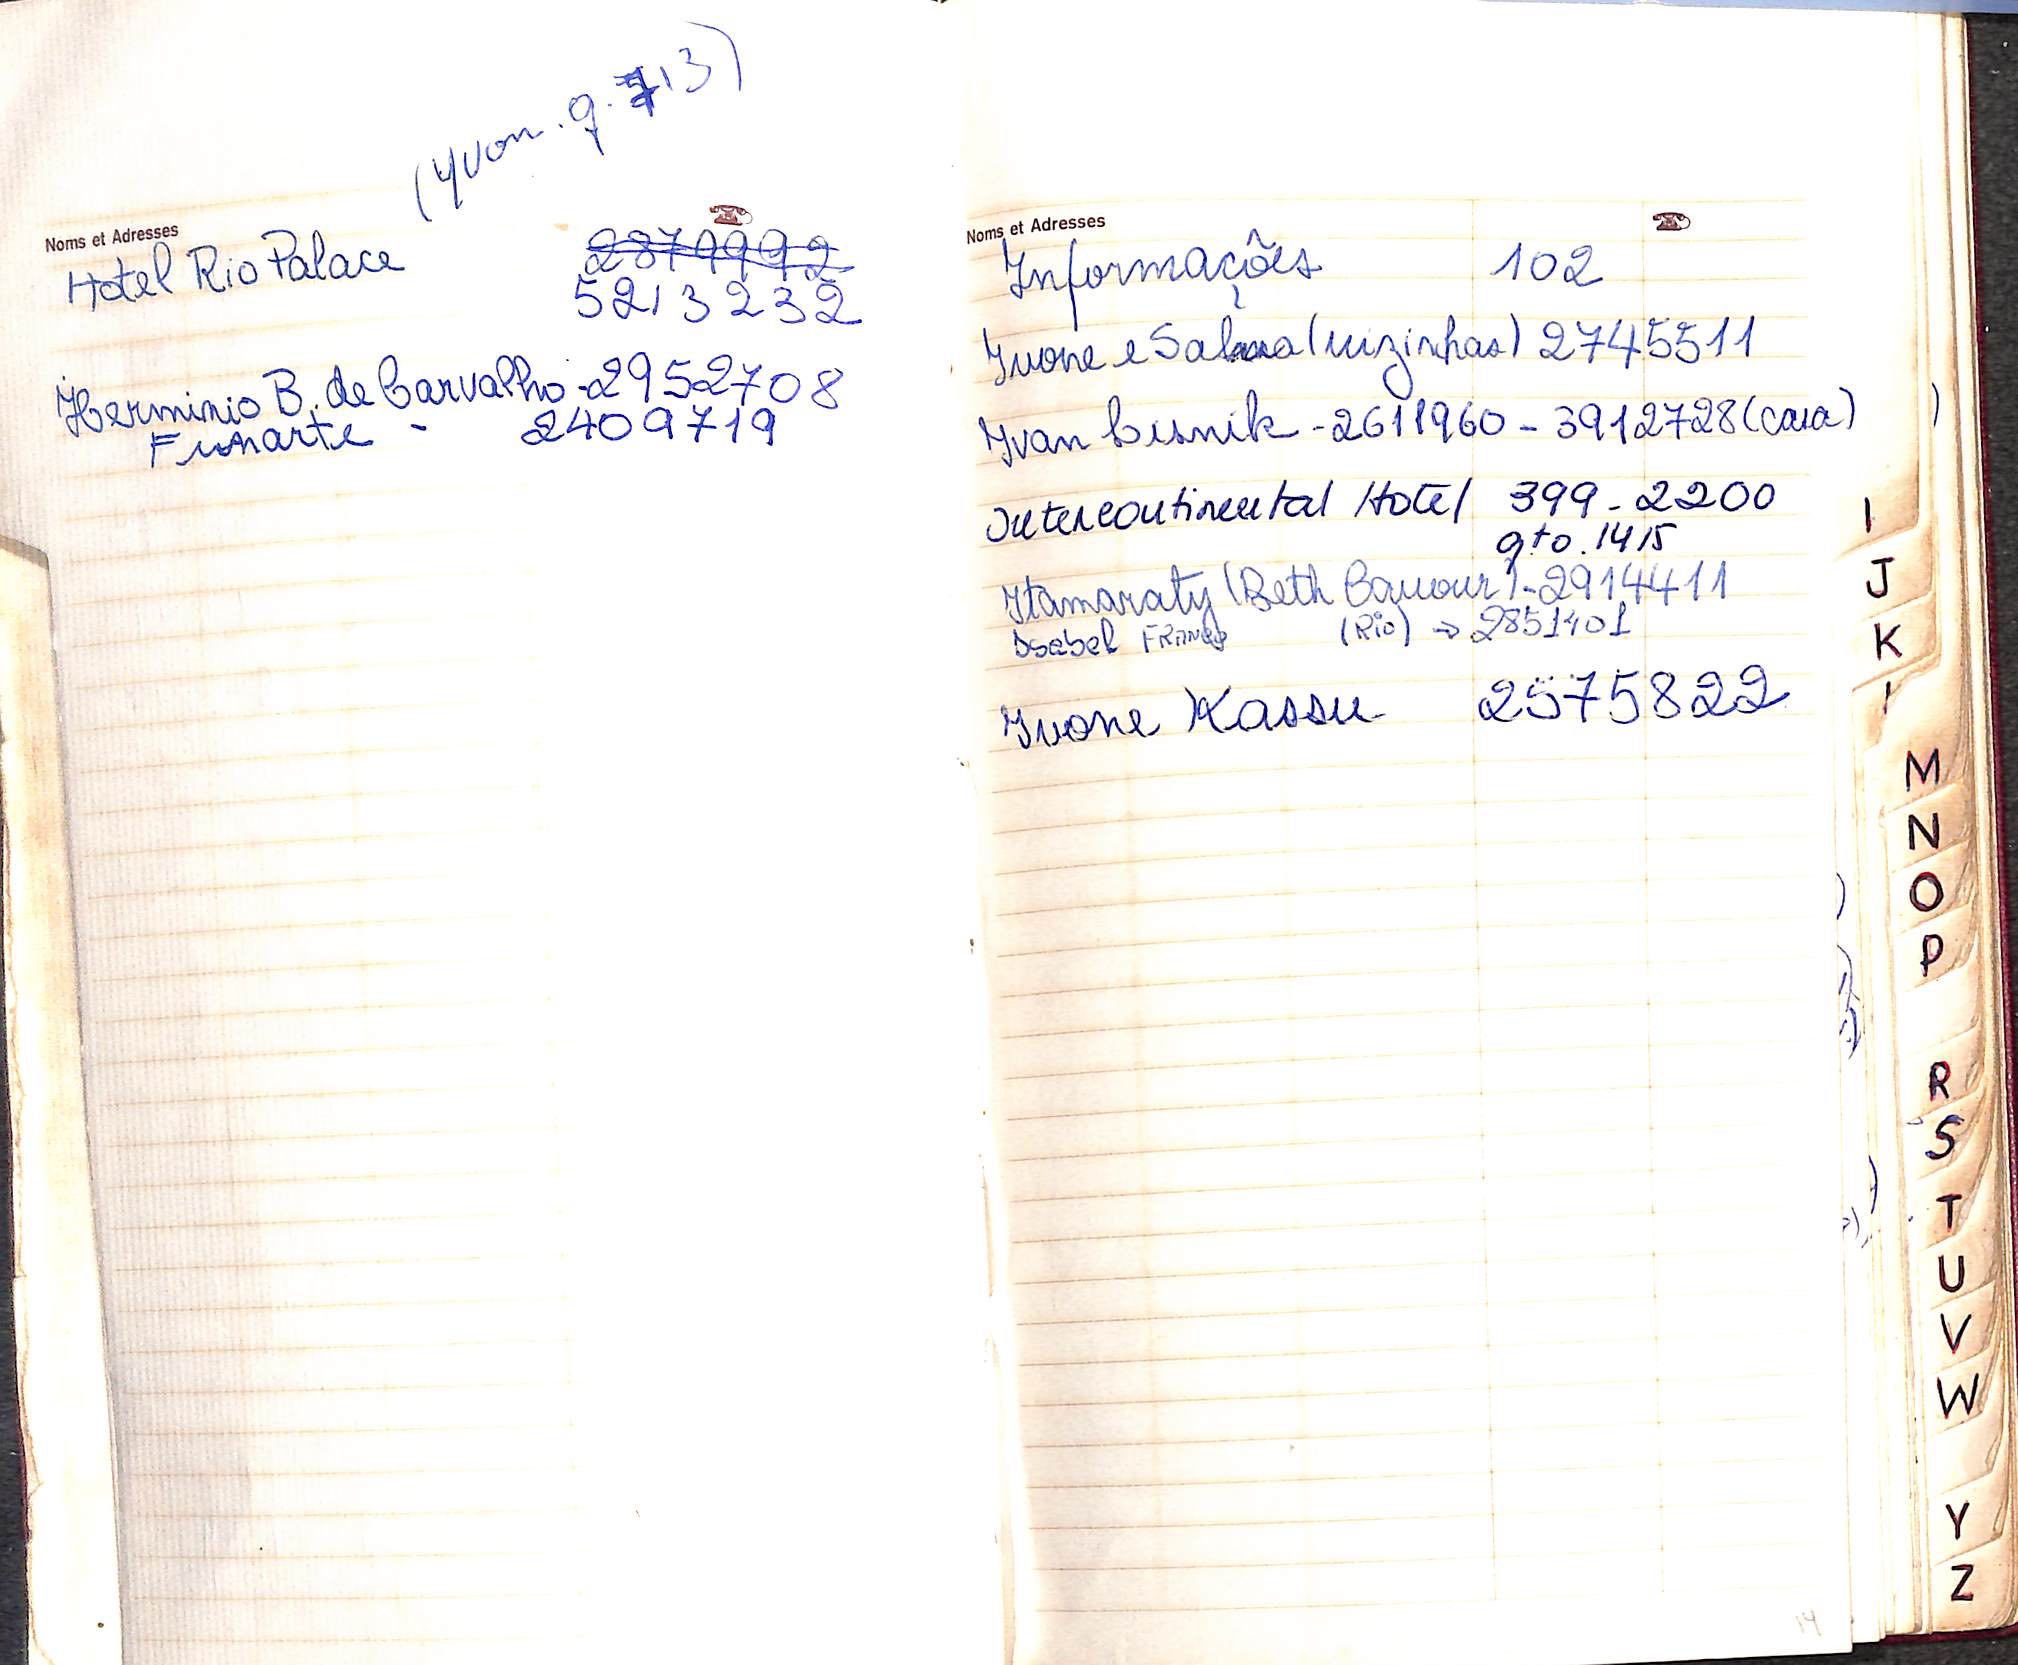 (Yvon. q. 713)
Noms et Adresses
Hotel Rio Palace 2879992
5213232
Herminio B. de Carvalho - 2952708
Funarte - 2409719
Noms et Adresses
Informações 102
Ivone e (vizinhas) 2745511
Ivan Lisnik - 2611960 - 3912728 (casa)
Intercontinental Hotel 399-2200
qto. 1415
Itamaraty (Beth) - 2914411
Isabel (Rio) → 2851401
Ivone Kassu 2575822
I
J
K
M
N
O
P
R
S
T
U
V
W
Y
Z
14